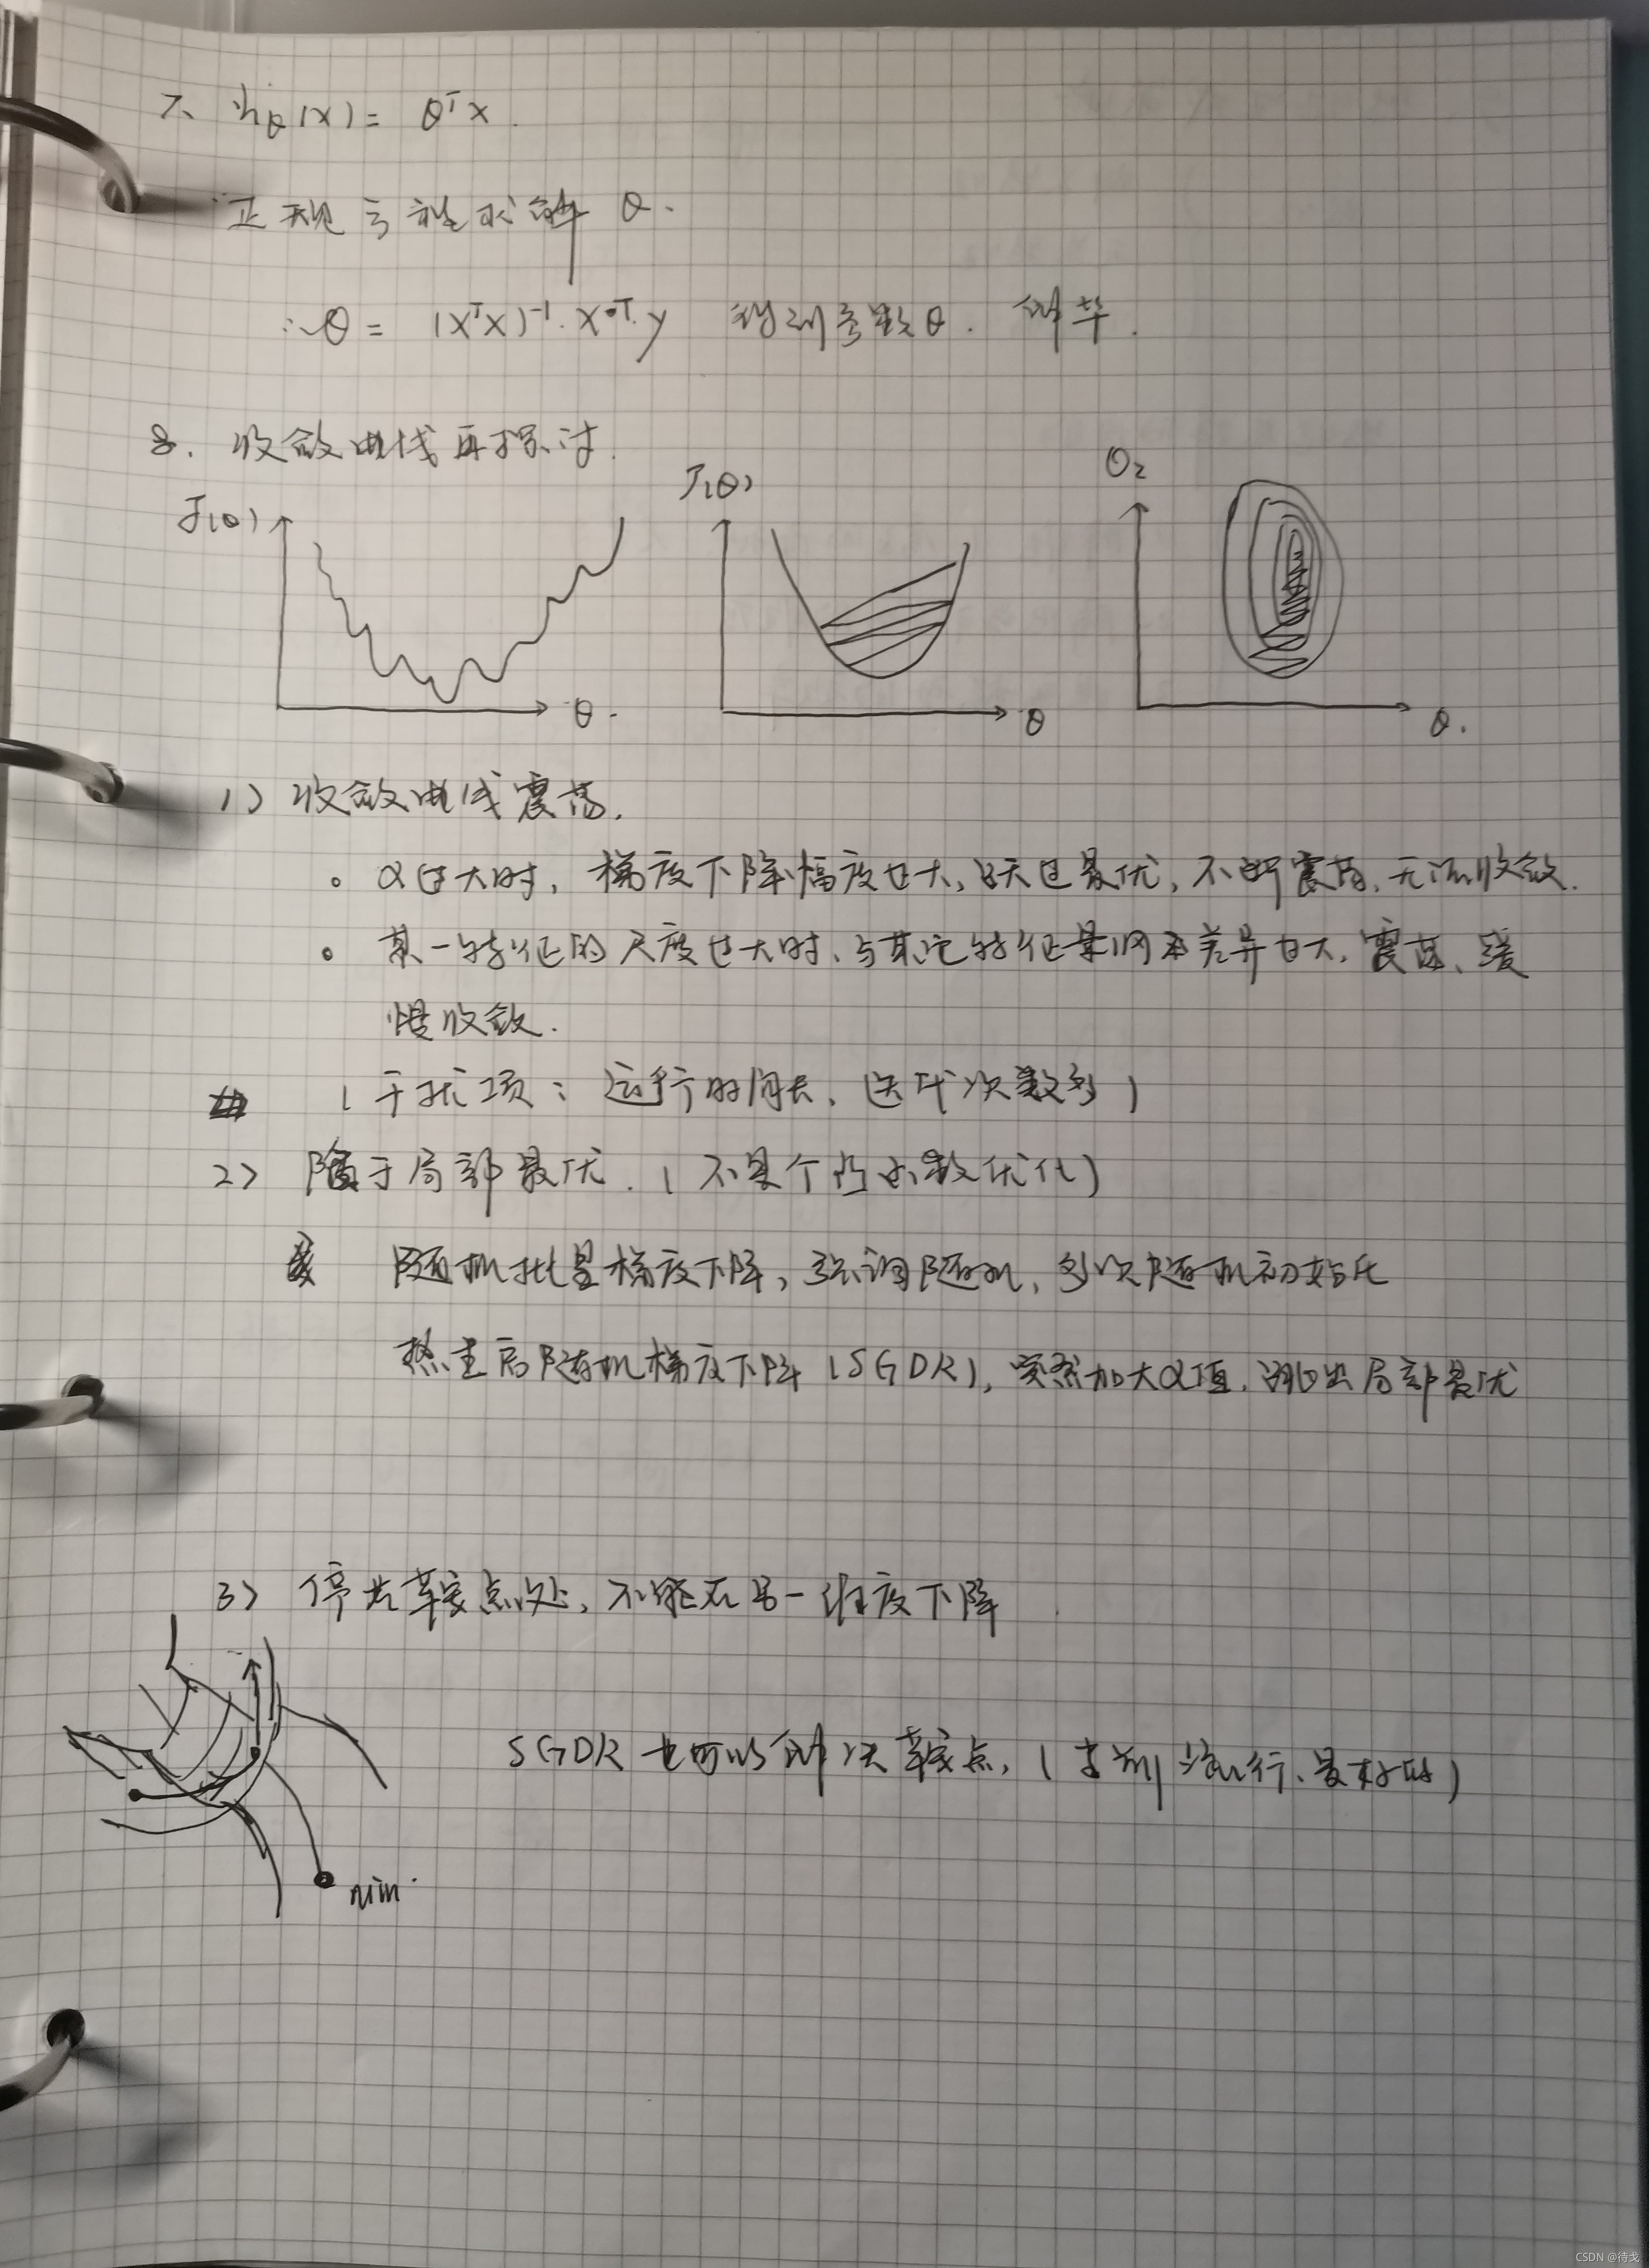 7、 hθ(x) = θᵀx.
正规方程求解 θ.
∴ θ = (XᵀX)⁻¹·Xᵀ·y 得到参数θ. 解毕.
8. 收敛曲线再探讨.
J(θ) θ.
J(θ) θ
θ₂ θ.
1) 收敛曲线震荡.
。 α过大时, 梯度下降幅度过大, 越过最优, 不断震荡, 无法收敛.
。 某一特征的尺度过大时, 与其它特征量纲差异过大, 震荡、缓
慢收敛.
(干扰项: 运行时间长, 迭代次数多)
2) 陷于局部最优. (不是个凸函数优化)
随机批量梯度下降, 强调随机, 多次随机初始化
热重启随机梯度下降 (SGDR), 突然加大α值, 跳出局部最优
3) 停在鞍点处, 不能在另一维度下降
SGDR 也可以解决鞍点, (目前流行、最好的)
min.
CSDN @待戈